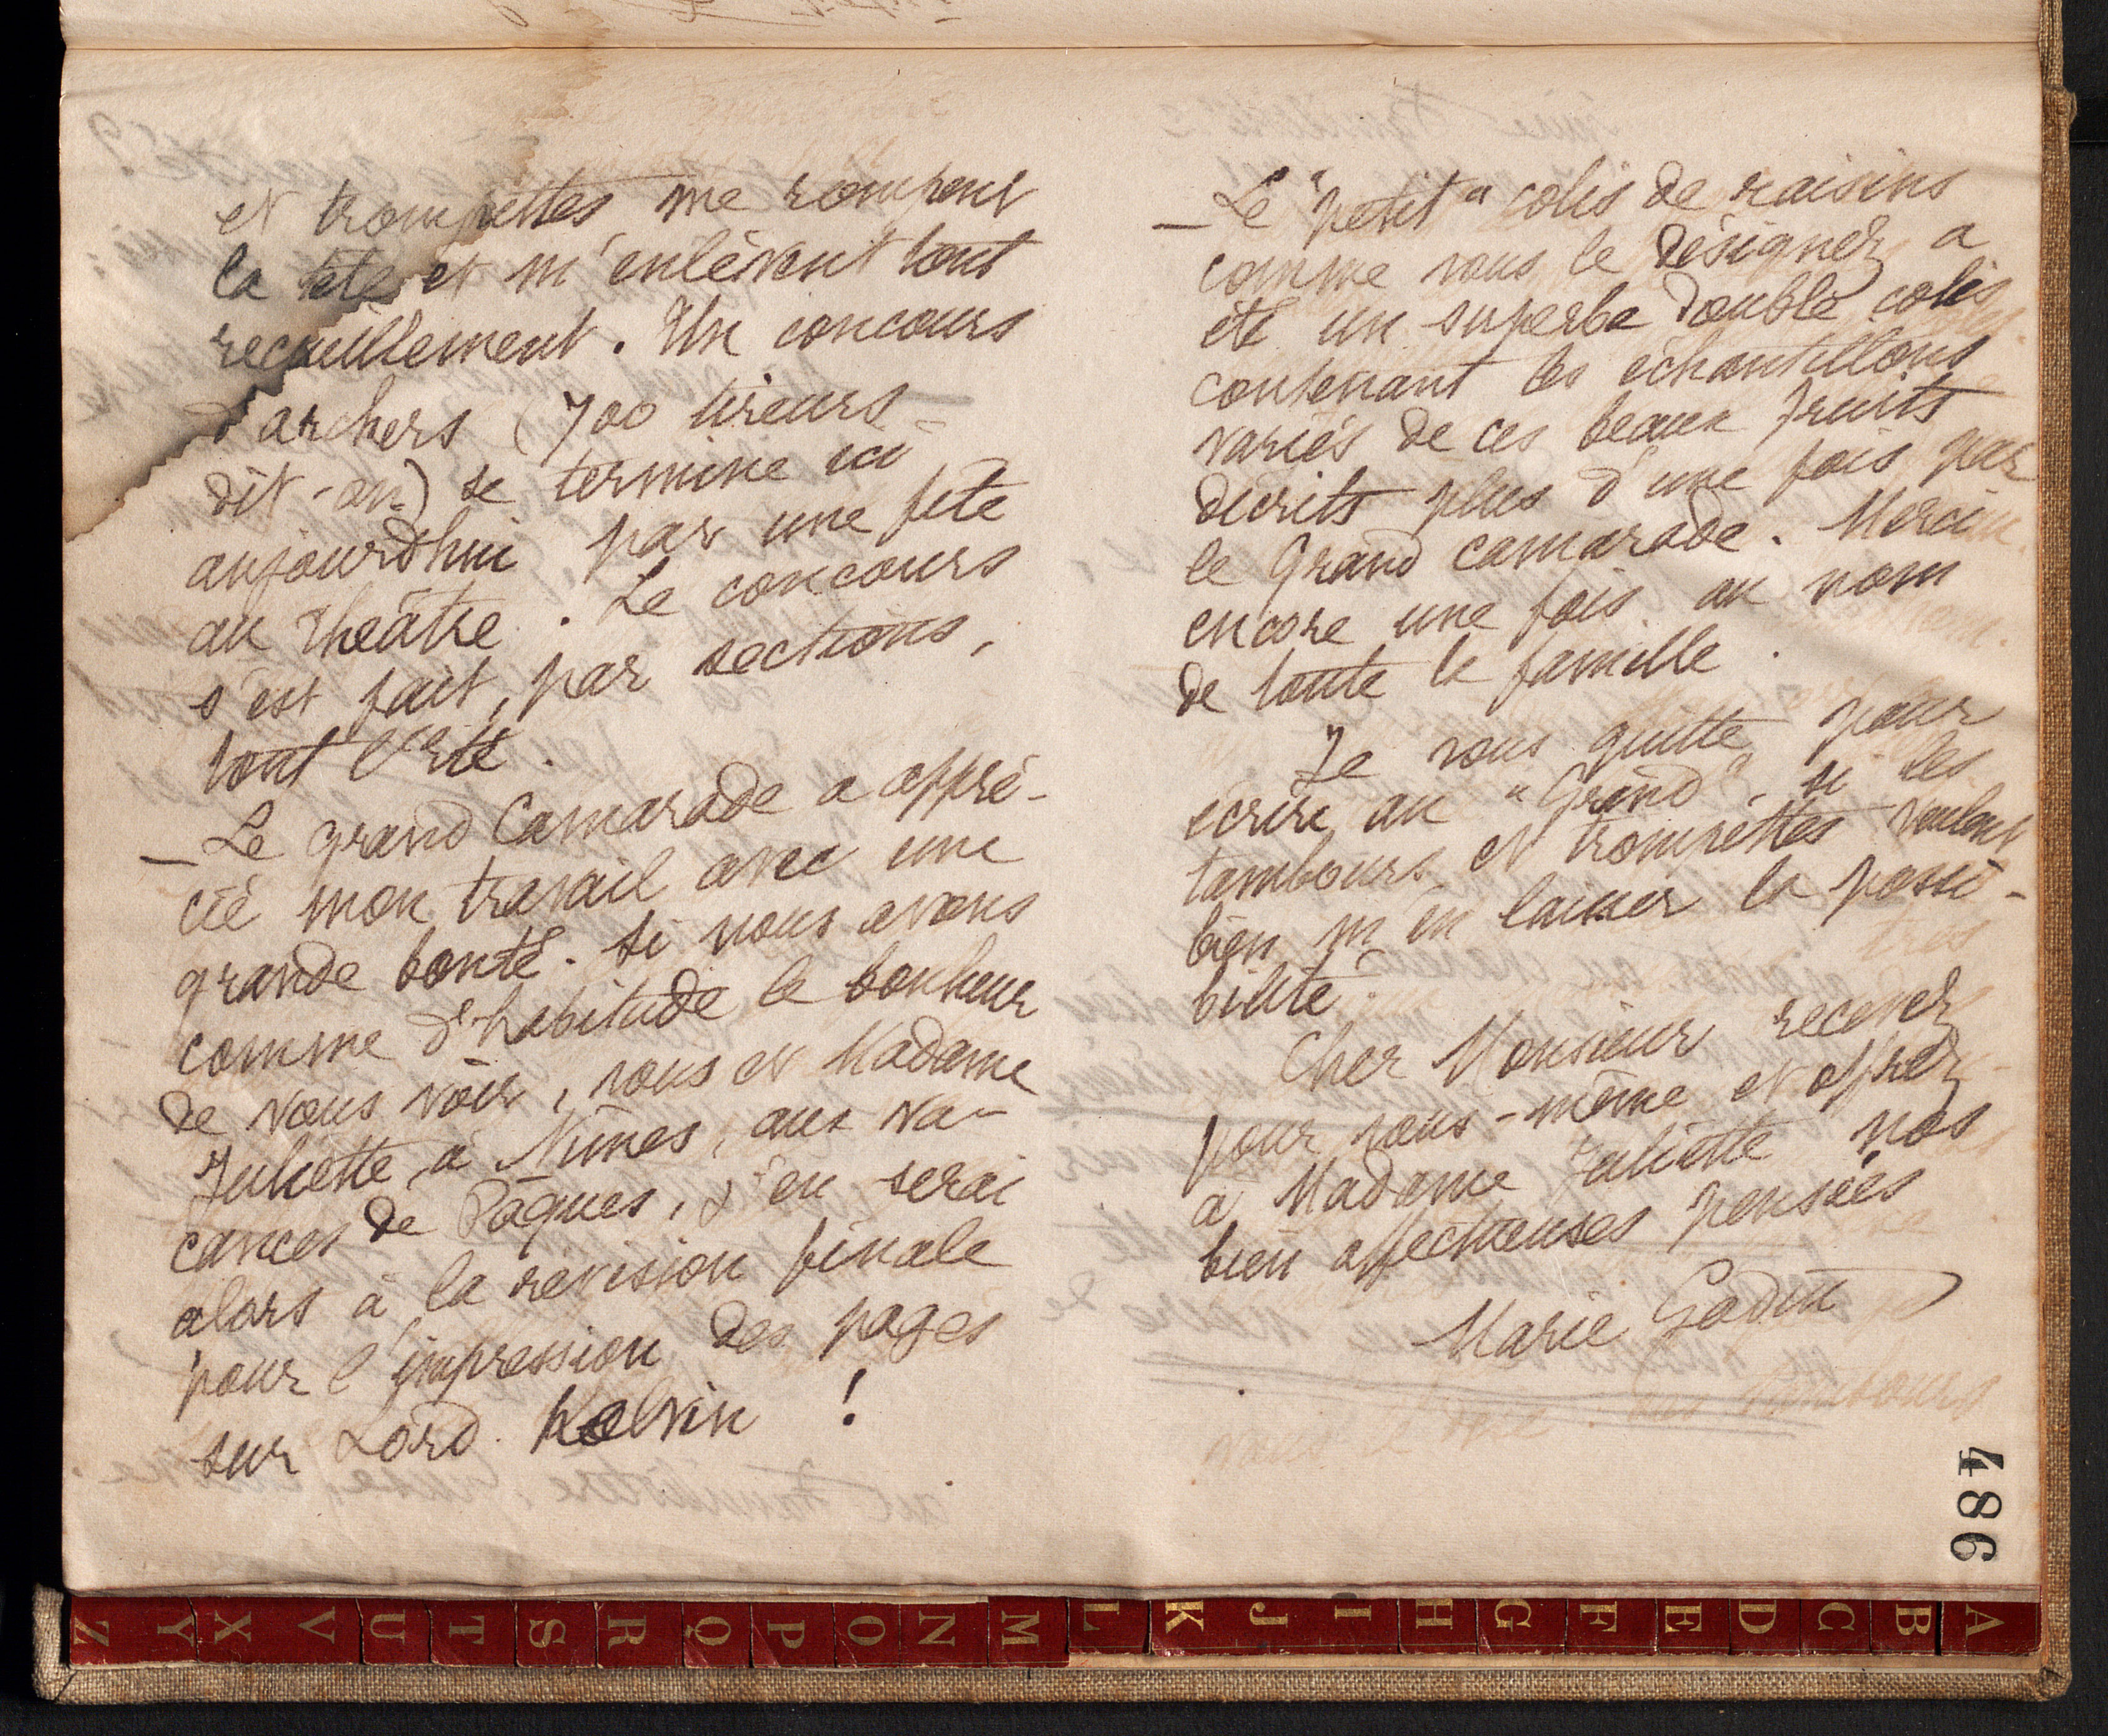 et trompettes me rompent
la tête et m'enlèvent tout
recueillement. Un concours
d'archers (700 tireurs
dit-on) se termine ici
aujourdhui par une fête
au Théâtre. Le concours
s'est fait, par sections,
tout l'été.
— Le grand Camarade a appré-
cié mon travail avec une
grande bonté. Si nous avons
comme d'habitude le bonheur
de vous voir, vous et Madame
Juliette, à Nîmes, aux va-
cances de Pâques, j'en serai
alors à la révision finale
pour l'impression des pages
sur Lord Kelvin !
— Le "petit" colis de raisins
comme vous le désignez a
été un superbe double colis
contenant les échantillons
variés de ces beaux fruits
décrits plus d'une fois par
le Grand camarade. Merci
encore une fois au nom
de toute la famille.
Je vous quitte pour
écrire au "Grand", si les
tambours et trompettes veulent
bien m'en laisser la possi-
bilité.
Cher Monsieur recevez
pour vous-même et offrez
à Madame Juliette nos
bien affectueuses pensées
Marie Godin
486
A B C D E F G H I J K L M N O P Q R S T U V X Y Z